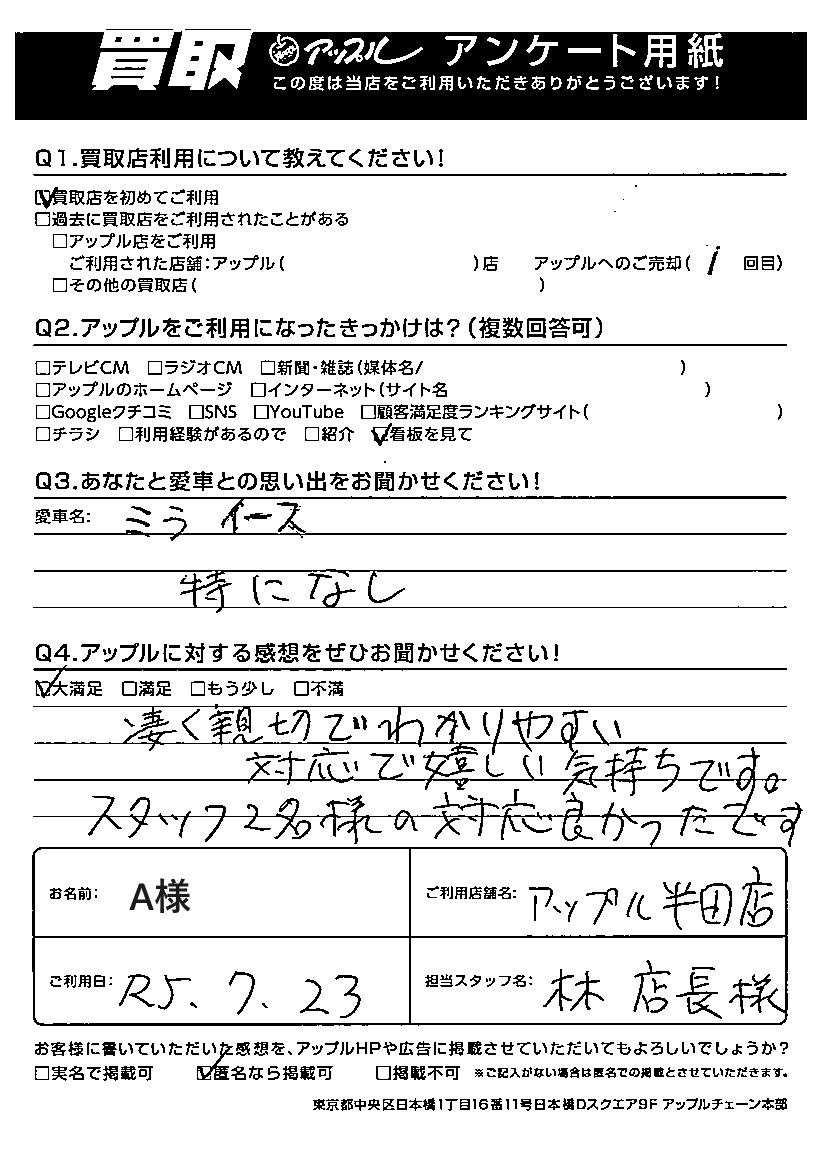 買取 アップル アンケート用紙
この度は当店をご利用いただきありがとうございます!
Q1.買取店利用について教えてください!
☑買取店を初めてご利用
□過去に買取店をご利用されたことがある
□アップル店をご利用
ご利用された店舗:アップル( )店 アップルへのご売却( 1 回目)
□その他の買取店( )
Q2.アップルをご利用になったきっかけは?(複数回答可)
□テレビCM □ラジオCM □新聞・雑誌(媒体名/ )
□アップルのホームページ □インターネット(サイト名 )
□Googleクチコミ □SNS □YouTube □顧客満足度ランキングサイト( )
□チラシ □利用経験があるので □紹介 ☑看板を見て
Q3.あなたと愛車との思い出をお聞かせください!
愛車名: ミラ イース
特になし
Q4.アップルに対する感想をぜひお聞かせください!
☑大満足 □満足 □もう少し □不満
凄く親切でわかりやすい
対応で嬉しい気持ちです。
スタッフ2名様の対応良かったです
お名前: A様 ご利用店舗名: アップル半田店
ご利用日: R5.7.23 担当スタッフ名: 林 店長様
お客様に書いていただいた感想を、アップルHPや広告に掲載させていただいてもよろしいでしょうか?
□実名で掲載可 ☑匿名なら掲載可 □掲載不可 ※ご記入がない場合は匿名での掲載とさせていただきます。
東京都中央区日本橋1丁目16番11号日本橋Dスクエア9F アップルチェーン本部